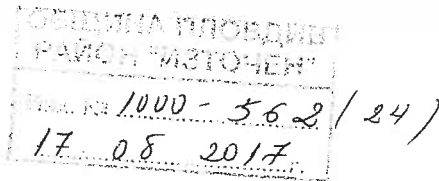 ОБЩИНА ПЛОВДИВ
РАЙОН "ИЗТОЧЕН"
№ 1000 - 562 (24)
17 08 2017